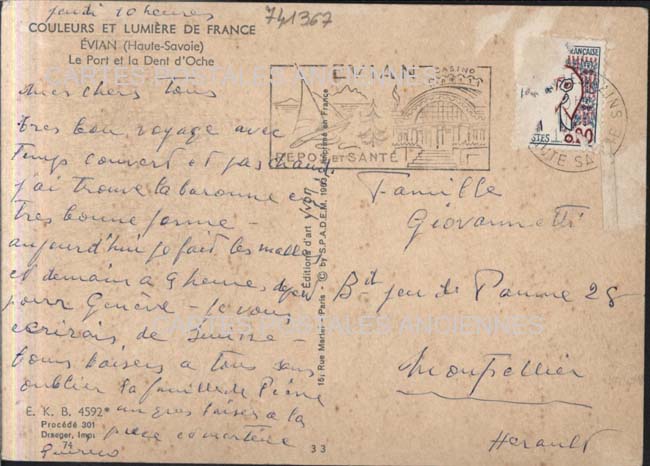 jeudi 10 heures
741367
COULEURS ET LUMIÈRE DE FRANCE
ÉVIAN (Haute-Savoie)
Le Port et la Dent d'Oche
Mes chers Tous
très bon voyage avec
Temps couvert et pas chaud
j'ai trouvé la baronne en
très bonne forme -
aujourd'hui je fait les malles
et demain a 9 heures
pour Genève - je vous
ecrirais de Suisse -
bons baisers a tous sans
oublier la famille de Pierre
un gros baiser a la
E. K. B. 4592
Procédé 301
Draeger, Imp.
74
33
Éditions d'art yvon
15, Rue Martel - Paris - © by S.P.A.D.E.M. Imprimé en France
EVIAN
CASINO
REPOS ET SANTÉ
FRANÇAISE
POSTES 0,20
BAINS
HAUTE SAVOIE
Famille
Giovannetti
Bd jeu de Paume 28
Montpellier
Herault
CARTES POSTALES ANCIENNES
CARTES POSTALES ANCIENNES